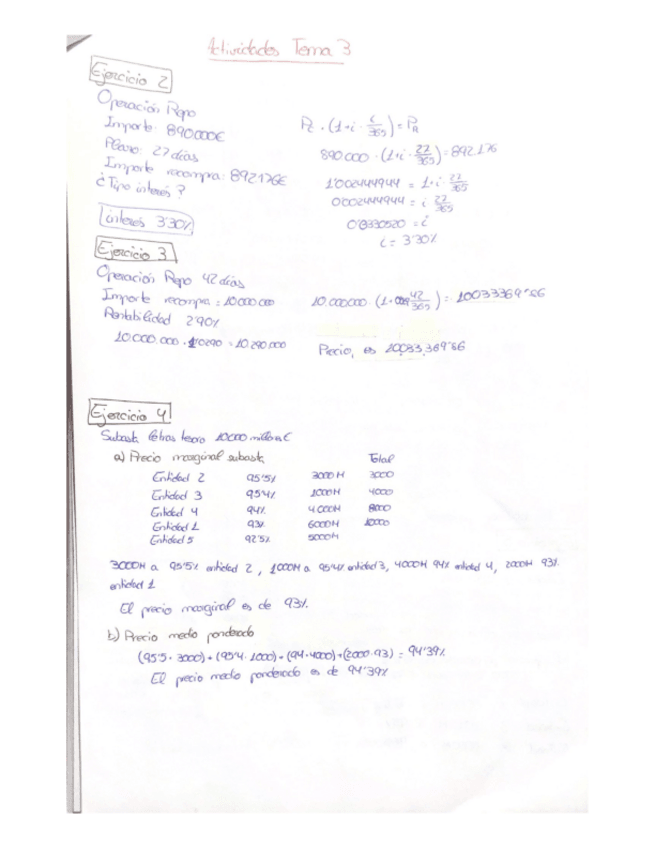 Actividades Tema 3
Ejercicio 2
Operación Repo
Importe: 890.000€
Plazo: 27 días
Importe recompra: 892176€
¿Tipo interés?
interés 3'30%
890.000 · (1+i · 27/365) = 892176
1'002444944 = 1+i · 27/365
0'002444944 = i 27/365
i = 3'30%
Ejercicio 3
Operación Repo 42 días
Importe recompra = 10.000.000
Rentabilidad 2'90%
10.000.000 · 1'0290 = 10.290.000
= 10033369'86
Precio, es 10,033,369'86
Ejercicio 4
Subasta letras tesoro 10.000 millones €
a) Precio marginal subasta
Total
Entidad 2 95'5% 3000M 3000
Entidad 3 95'4% 1000M 4000
Entidad 4 94% 4.000M 8000
Entidad 1 93% 6000M 10000
Entidad 5 92'5% 5000M
3000M a 95'5% entidad 2, 1000M a 95'4% entidad 3, 4000M 94% entidad 4, 2000M 93%
entidad 1
El precio marginal es de 93%.
b) Precio medio ponderado
(95'5 · 3000) + (95'4 · 1000) + (94 · 4000) + (2000 · 93) = 94'39%
El precio medio ponderado es de 94'39%